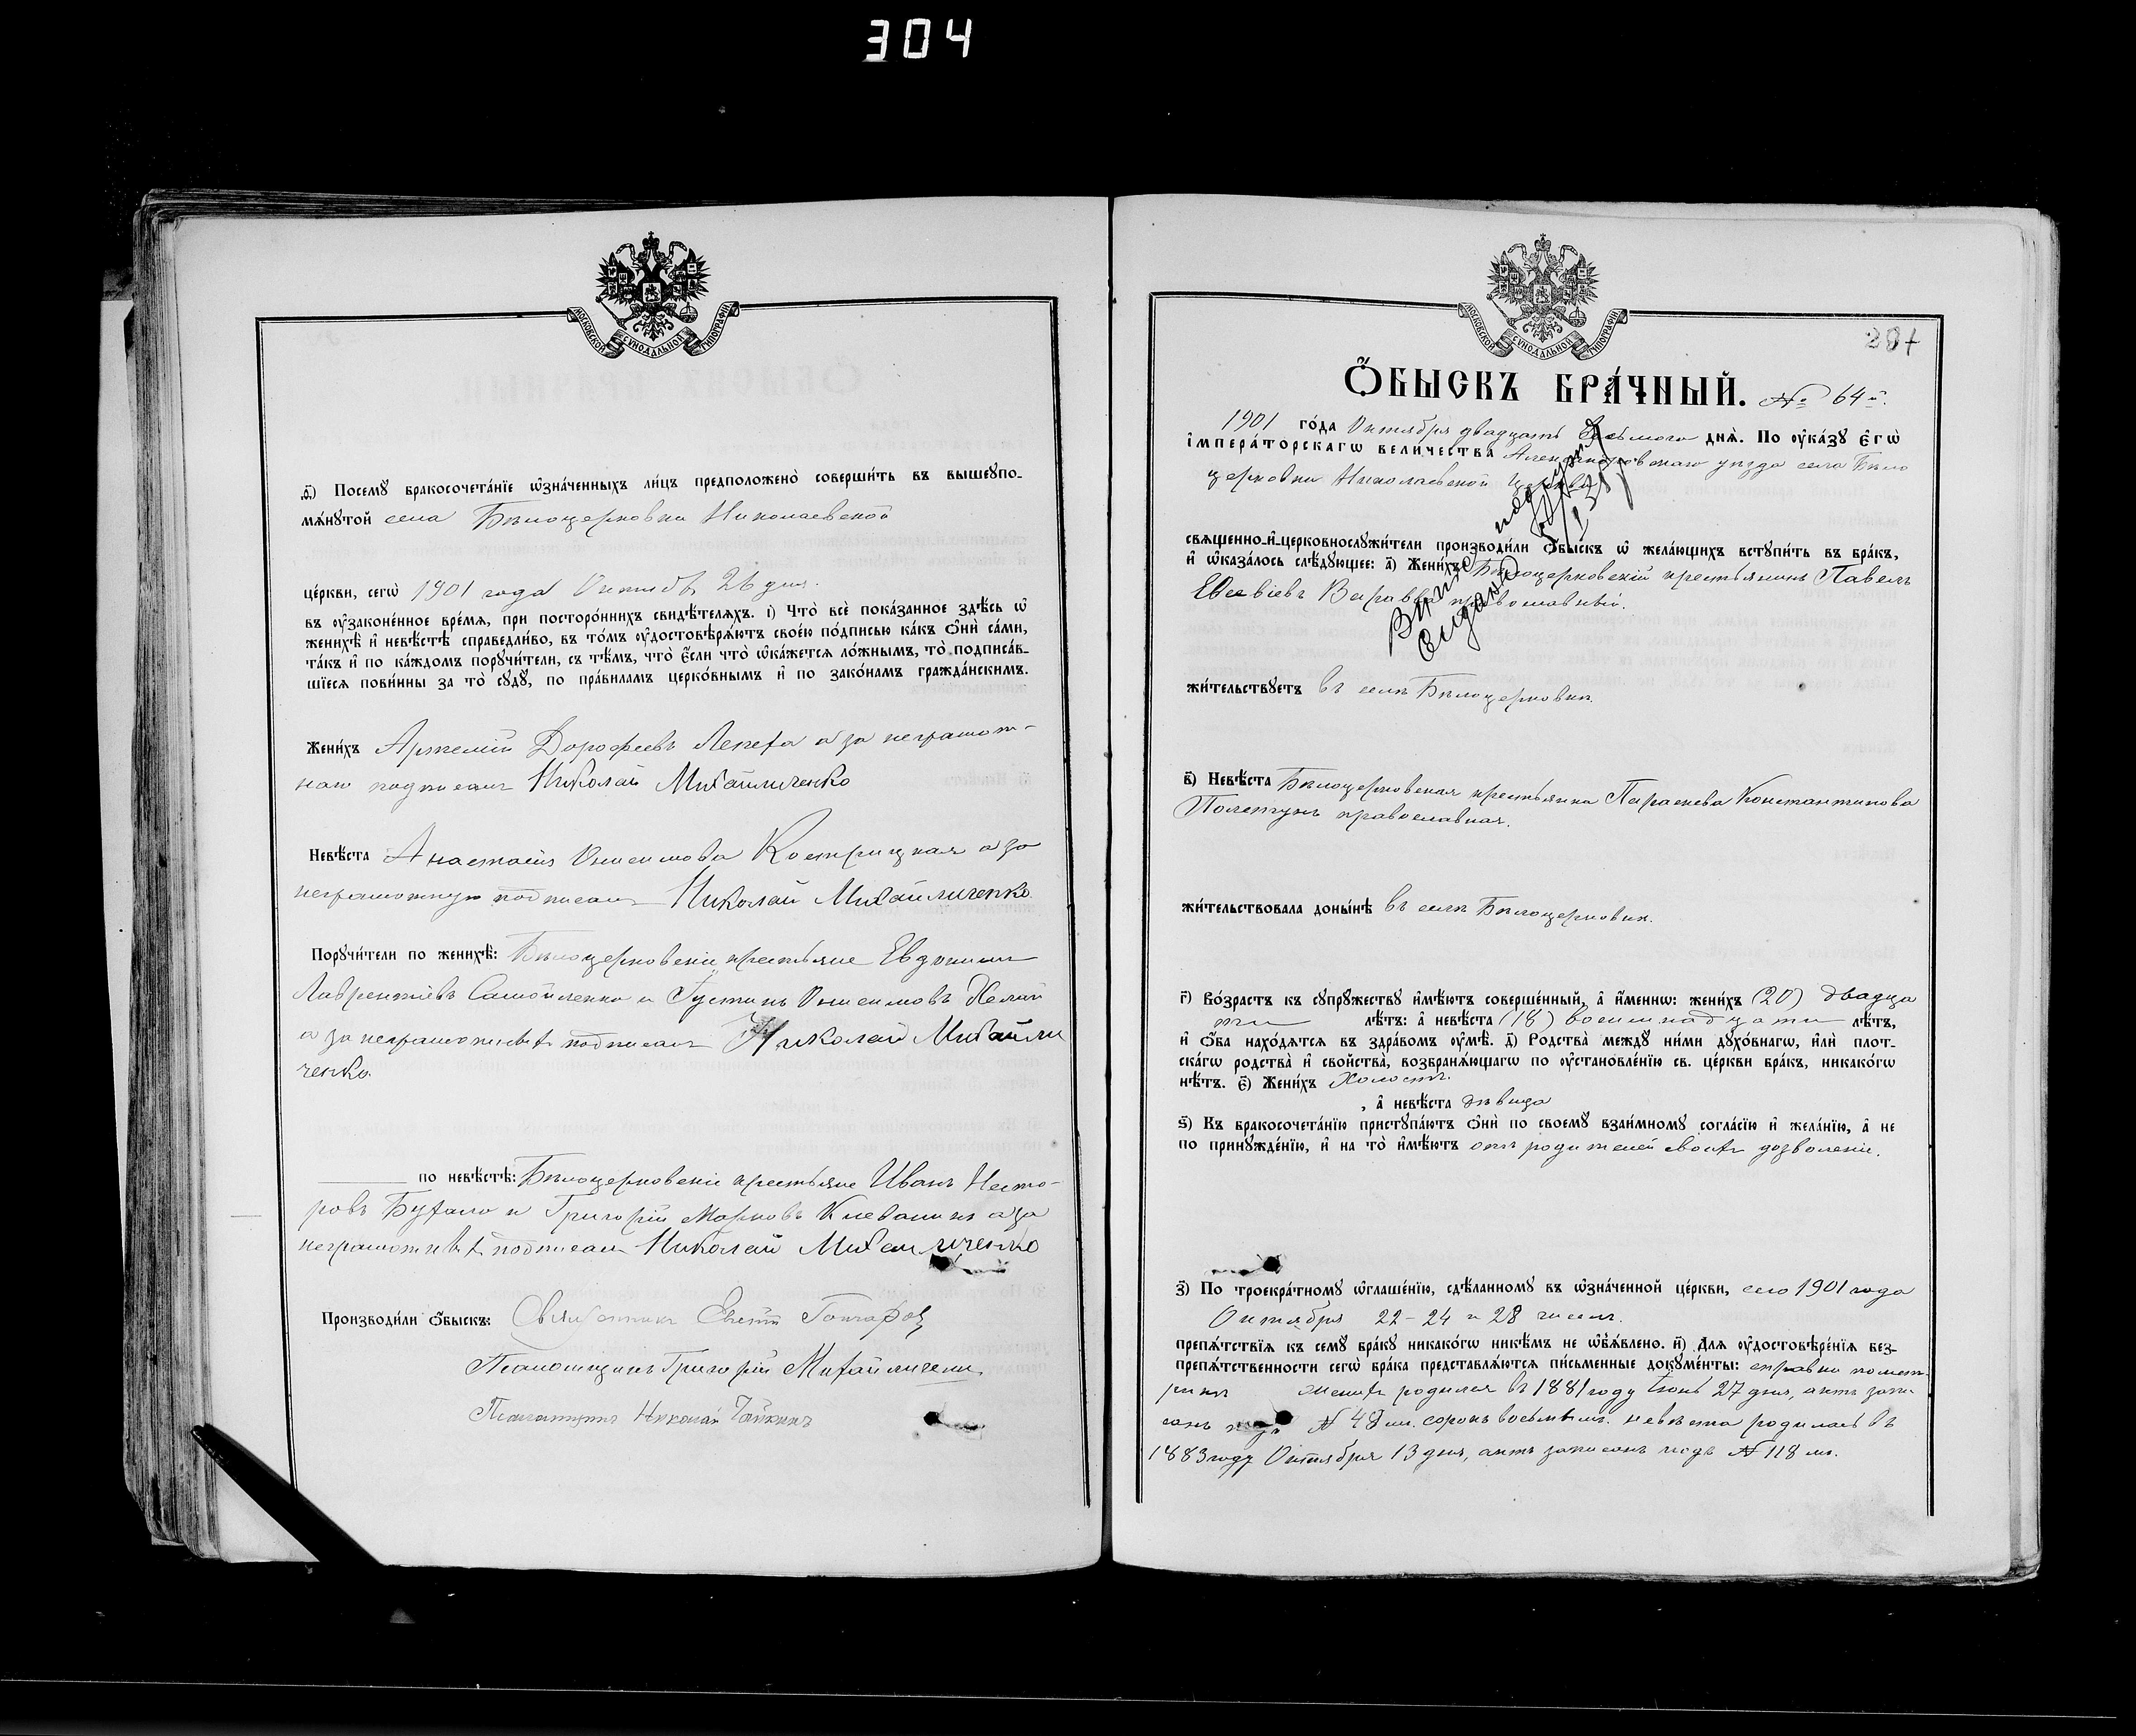 304
МОСКОВСКОЙ СѴНОДАЛЬНОЙ ТИПОГРАФІИ
ѳ҃) Посемꙋ бракосочета́нїе ѡ҆зна́ченныхъ ли́цъ предположено̀ соверши́ть въ вышеꙋпо-
мѧ́нꙋтой села Бѣлоцерковки Николаевской
це́ркви, сегѡ̀ 1901 года Октября 26 дня.
въ ᲂу҆зако́не́нное вре́мѧ, при посторо́ннихъ свидѣ́телѧхъ. і҃) Что̀ всѐ пока́занное здѣ́сь ѡ҆
женихѣ̀ и҆ невѣ́стѣ справедли́во, въ то́мъ ᲂу҆достовѣрѧ́ютъ свое́ю по́дписью ка́къ ѻ҆нѝ са́ми,
та́къ и҆ по ка́ждомъ порꙋчи́тели, съ тѣ́мъ, что̀ є҆́сли что̀ ѡ҆ка́жетсѧ ло́жнымъ, то̀ подписа́в-
шїесѧ пови́нны за то̀ сꙋдꙋ̀, по пра́виламъ церко́внымъ и҆ по зако́намъ гражда́нскимъ.
Жени́хъ Артемій Дорофеевъ Лепеха а за неграмот-
наго подписалъ Николай Михайличенко
Невѣ́ста Анастасія Онисимова Кострицкая а за
неграмотную подписалъ Николай Михайличенко
Порꙋчи́тели по женихѣ̀: Бѣлоцерковскіе крестьяне Евдокимъ
Лаврентіевъ Самойленко и Іустинъ Онисимовъ
а за неграмотныхъ подписалъ Николай Михайли
ченко.
по невѣ́стѣ: Бѣлоцерковскіе крестьяне Иванъ Несто-
ровъ Бухало и Григорій Марковъ а за
неграмотныхъ подписалъ Николай Михайличенко
Производи́ли ѻ҆́быскъ: Священникъ Гончаровъ
Псаломщикъ Григорій Михайличенко
Николай Чайкинъ
МОСКОВСКОЙ СѴНОДАЛЬНОЙ ТИПОГРАФІИ
287
Ѻ҆́БЫСКЪ БРА́ЧНЫЙ. № 64й.
1901 го́да Октября двадцать восьмого днѧ̀. По ᲂу҆ка́зꙋ є҆гѡ̀
і҆мпера́торскагѡ вели́чества Александровскаго уѣзда села Бѣло
церковки Николаевской церкви
свѧще́нно-и҆-церковнослꙋжи́тели производи́ли ѻ҆́быскъ ѡ҆ жела́ющихъ встꙋпи́ть въ бра́къ,
и҆ ѡ҆каза́лось слѣ́дꙋющее: а҃) Жени́хъ Бѣлоцерковскій крестьянинъ Павелъ
Евсевіевъ Варавва православный.
жи́тельствꙋетъ въ селѣ Бѣлоцерковки.
в҃) Невѣ́ста Бѣлоцерковская крестьянка Параскева Константинова
православная.
жи́тельствовала доны́нѣ въ селѣ Бѣлоцерковки.
г҃) Во́зрастъ къ сꙋпрꙋ́жествꙋ и҆мѣ́ютъ соверше́нный, а҆ и҆́меннѡ: жени́хъ (20) двадца
ти лѣ́тъ: а҆ невѣ́ста (18) восемнадцати лѣ́тъ,
и҆ ѻ҆́ба нахо́дѧтсѧ въ здра́вомъ ᲂу҆мѣ̀. д҃) Родства̀ междꙋ̀ ни́ми дꙋхо́внагѡ, и҆лѝ плот-
ска́гѡ родства̀ и҆ сво́йства̀, возбранѧ́ющагѡ по ᲂу҆становле́нїю св. це́ркви бра́къ, никако́гѡ
нѣ́тъ. є҃) Жени́хъ холостъ.
, а҆ невѣ́ста дѣвица
ѕ҃) Къ бракосочета́нїю пристꙋпа́ютъ ѻ҆нѝ по своемꙋ̀ взаи́мномꙋ согла́сїю и҆ жела́нїю, а҆ не
по принꙋжде́нїю, и҆ на то̀ и҆мѣ́ютъ отъ родителей своихъ дозволеніе.
з҃) По троекра́тномꙋ ѡ҆глаше́нїю, сдѣ́ланномꙋ въ ѡ҆зна́ченной це́ркви, сего 1901 года
Октября 22-24 и 28 числъ.
препѧ́тствїѧ къ семꙋ̀ бра́кꙋ никако́гѡ никѣ́мъ не ѡ҆б̾ѧ́влено. и҃) Для ᲂу҆достовѣре́нїѧ без-
препѧ́тственности сегѡ̀ бра́ка представлѧ́ютсѧ пи́сьменные докꙋме́нты: справка по мет
рикѣ женихъ родился въ 1881 году Іюнь 27 дня, актъ запи
санъ подъ № 48мъ. сорокъ восьмымъ. невѣста родилась въ
1883 году Октября 13 дня, актъ записанъ подъ № 118 мъ.